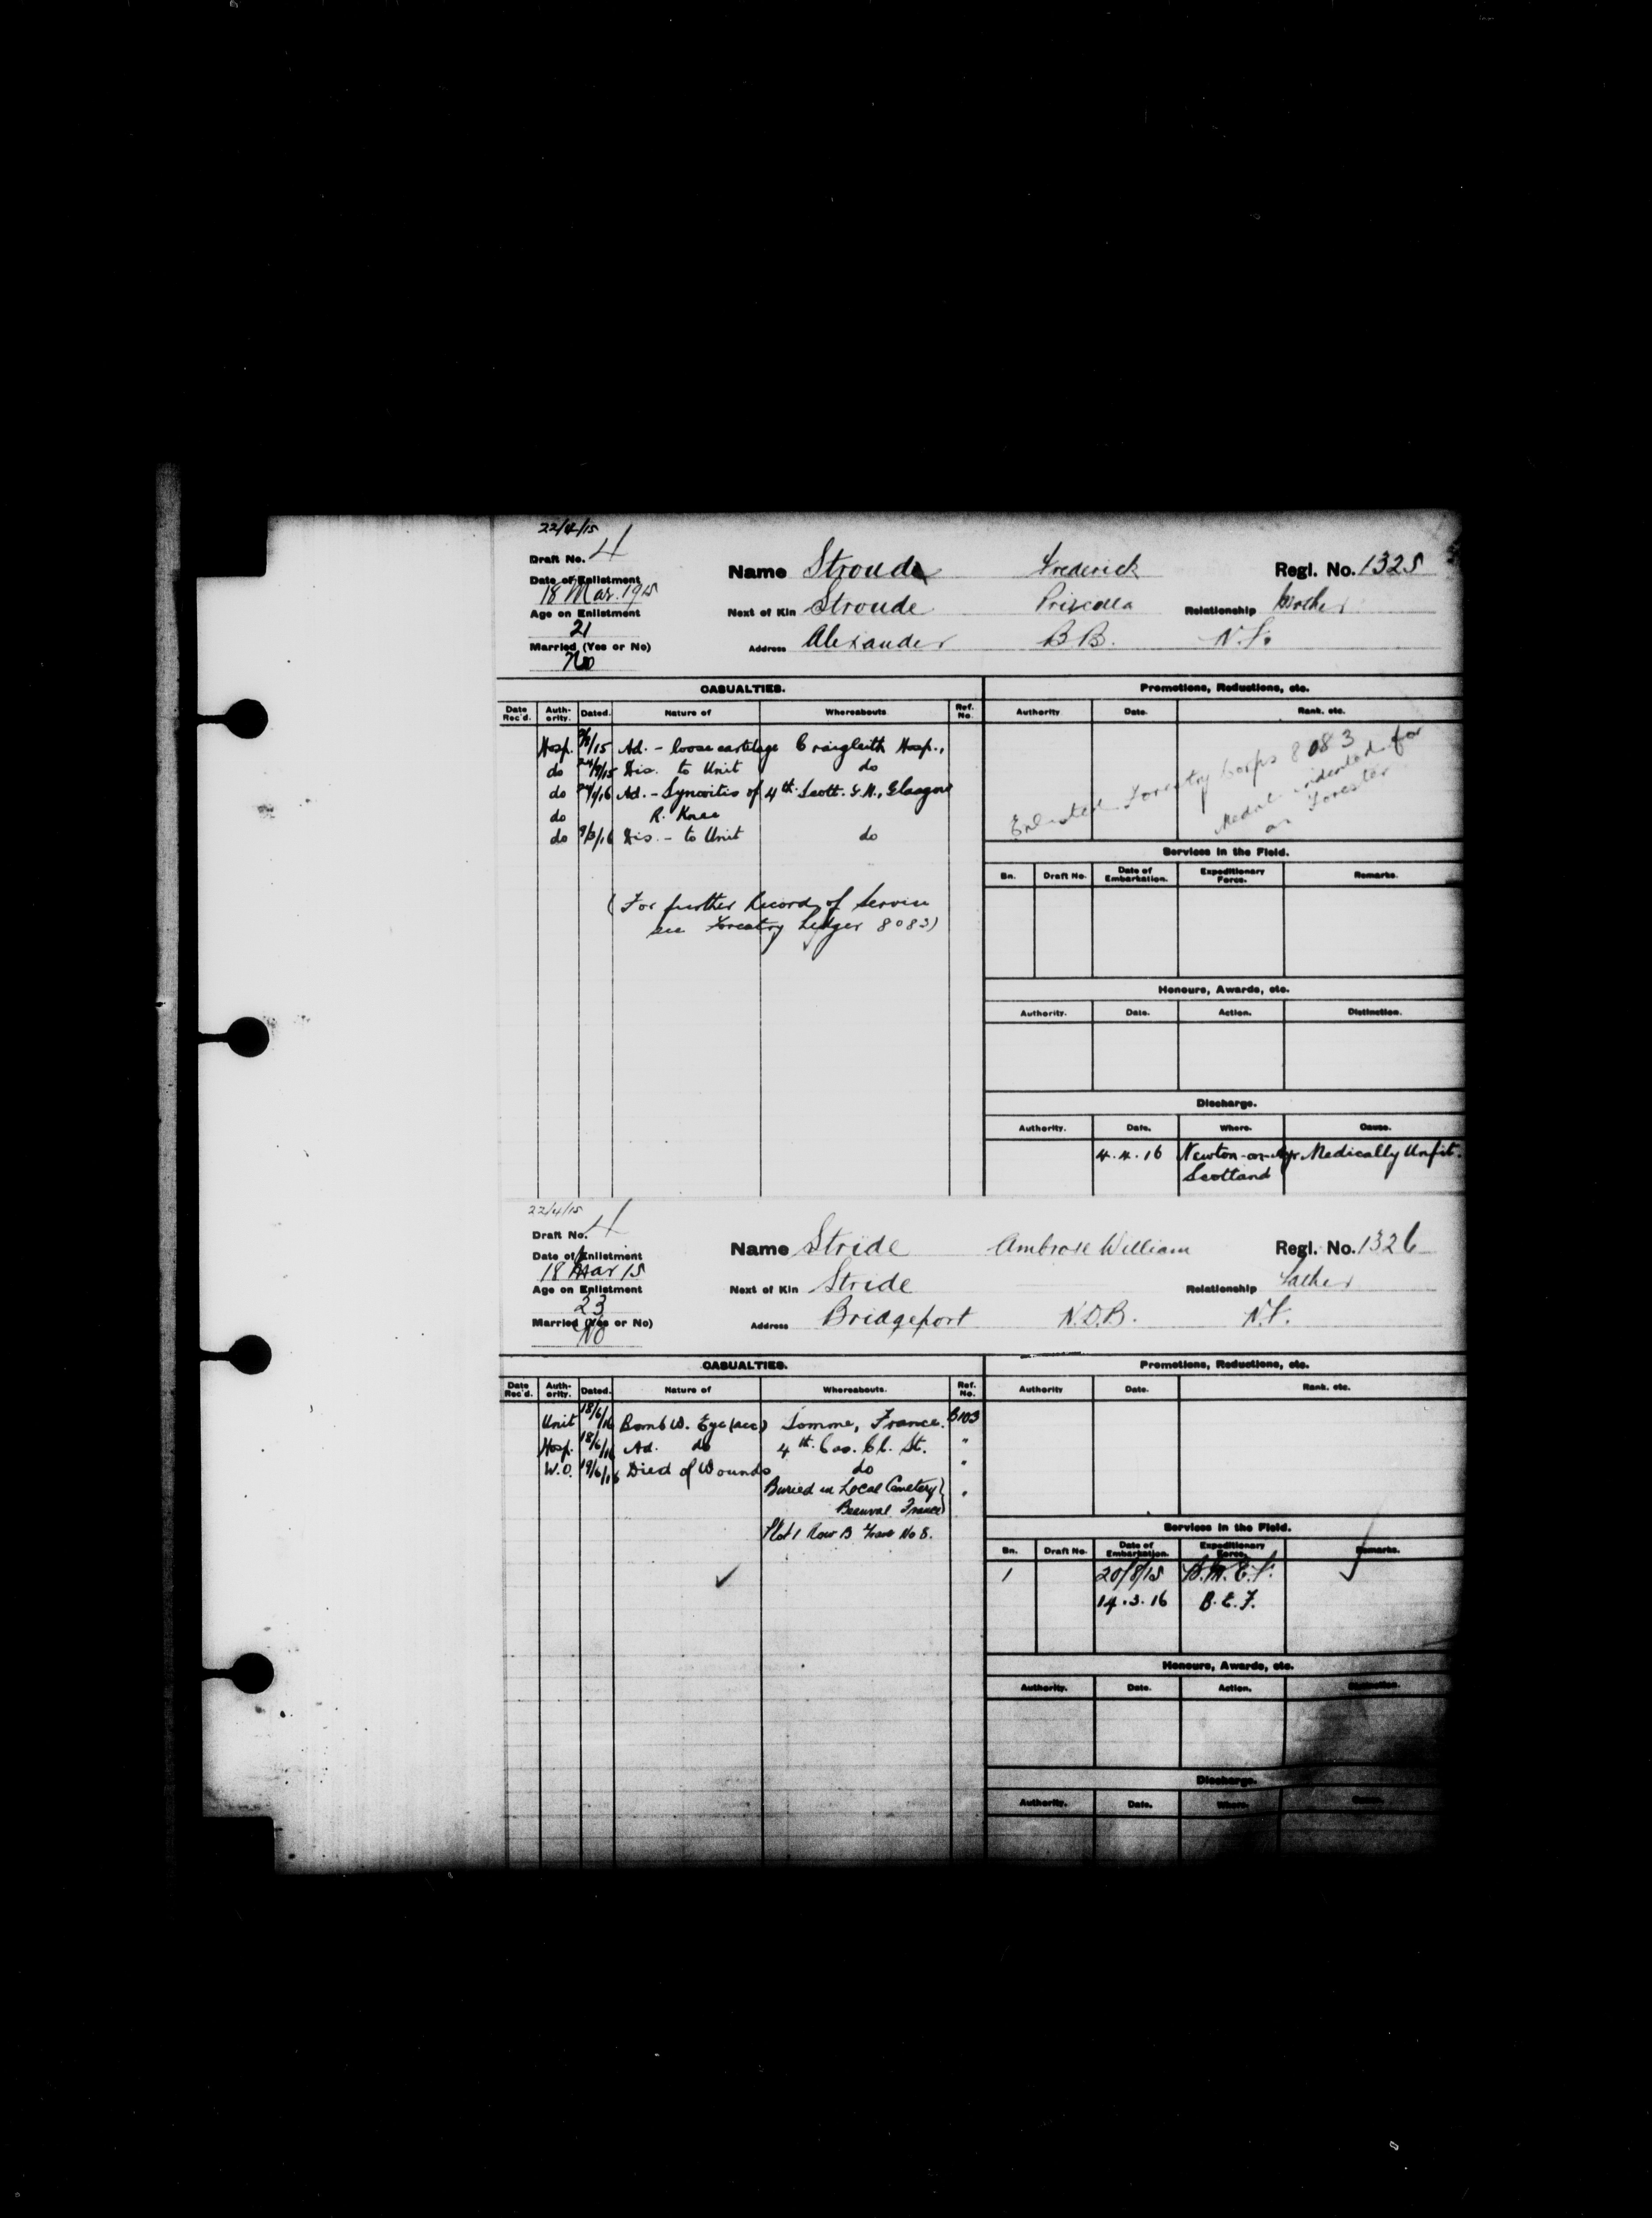 22/4/15
Draft No. 4
Name Stroude Frederick Regl. No. 1325
Date of Enlistment
18 Mar. 1915
Next of Kin Stroude Priscilla Relationship Mother
Age on Enlistment
21
Address Alexander B.B. N.F.
Married (Yes or No)
No
CASUALTIES.
Promotions, Reductions, etc.
Date Rec'd. Authority. Dated. Nature of Whereabouts. Ref. No.
Authority Date. Rank, etc.
Hosp. /15 Ad. - loose cartilage Craigleith Hosp.,
do 24/9/15 Dis. to Unit do
do 24/1/16 Ad. - Synovitis of 4th Scott. G.H., Glasgow
do R. Knee
do 9/3/16 Dis. - to Unit do
Enlisted Forestry Corps 8083
Medal indented for
as Forester
(For further Record of Service
see Forestry Ledger 8083)
Services in the Field.
Bn. Draft No. Date of Embarkation. Expeditionary Force. Remarks.
Honours, Awards, etc.
Authority. Date. Action. Distinction.
Discharge.
Authority. Date. Where. Cause.
4.4.16 Newton-on-Ayr Medically Unfit.
Scotland
22/4/15
Draft No. 4
Name Stride Ambrose William Regl. No. 1326
Date of Enlistment
18 Mar 15
Next of Kin Stride Relationship Father
Age on Enlistment
23
Address Bridgeport N.D.B. N.F.
Married (Yes or No)
No
CASUALTIES.
Promotions, Reductions, etc.
Date Rec'd. Authority. Dated. Nature of Whereabouts. Ref. No.
Authority Date. Rank, etc.
Unit 18/6/16 Bomb W. Eye (acc) Somme, France. B103
Hosp. 18/6/16 Ad. do 4th Cas. Cl. St. "
W.O. 19/6/16 Died of Wounds do "
Buried in Local Cemetery } "
Beauval France
Plot 1 Row B Grave No 8.
Services in the Field.
Bn. Draft No. Date of Embarkation. Expeditionary Force. Remarks.
1 20/8/15 B.M.E.F.
14.3.16 B.E.F.
Honours, Awards, etc.
Authority. Date. Action. Distinction.
Discharge.
Authority. Date. Where. Cause.